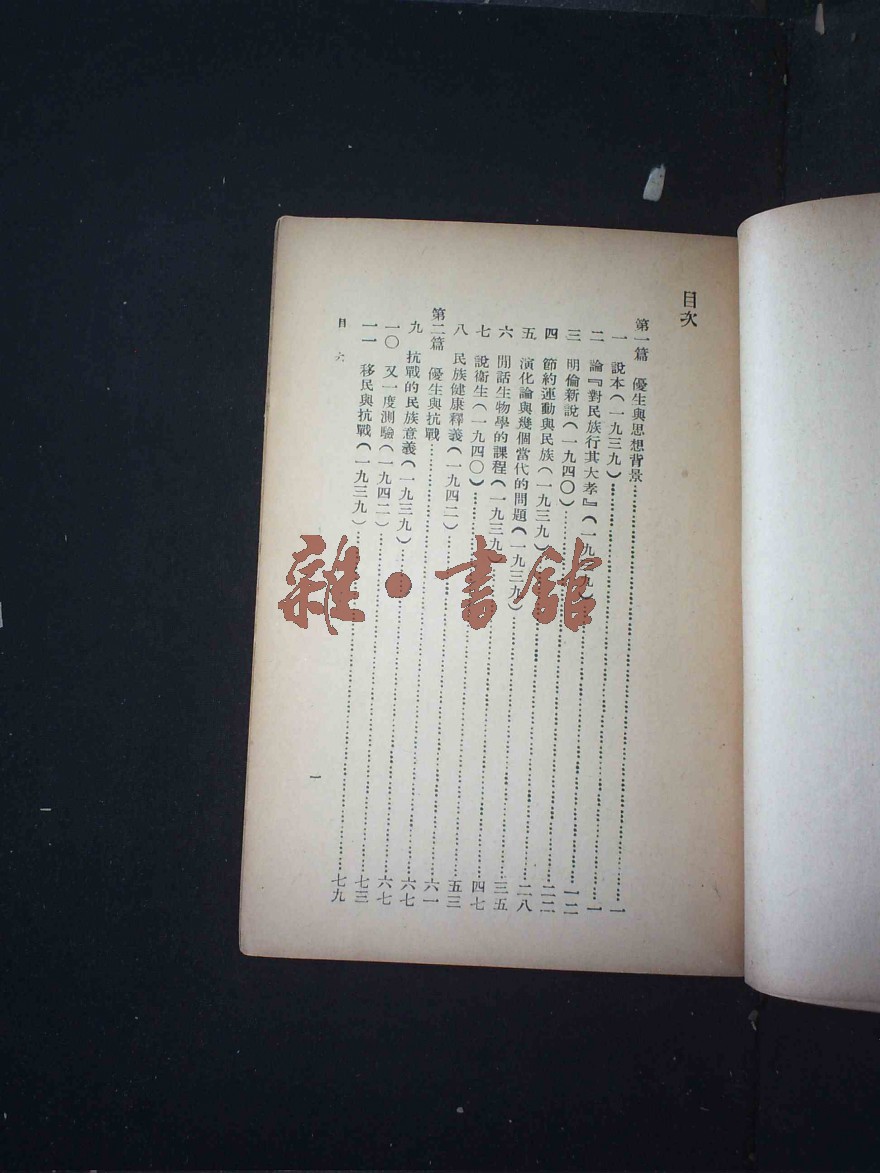 目次
第一篇　優生與思想背景……一
一　說本(一九三九)……一
二　論『對民族行其大孝』(一九三九)……一二
三　明倫新說(一九四〇)……二二
四　節約運動與民族(一九三九)……二八
五　演化論與幾個當代的問題(一九三九)……三五
六　閒話生物學的課程(一九三九)……四七
七　說衞生(一九四〇)……五三
八　民族健康釋義(一九四二)……六一
第二篇　優生與抗戰……六七
九　抗戰的民族意義(一九三九)……六七
一〇　又一度測驗(一九四二)……七三
一一　移民與抗戰(一九三九)……七九
目　六
一
雜·書館